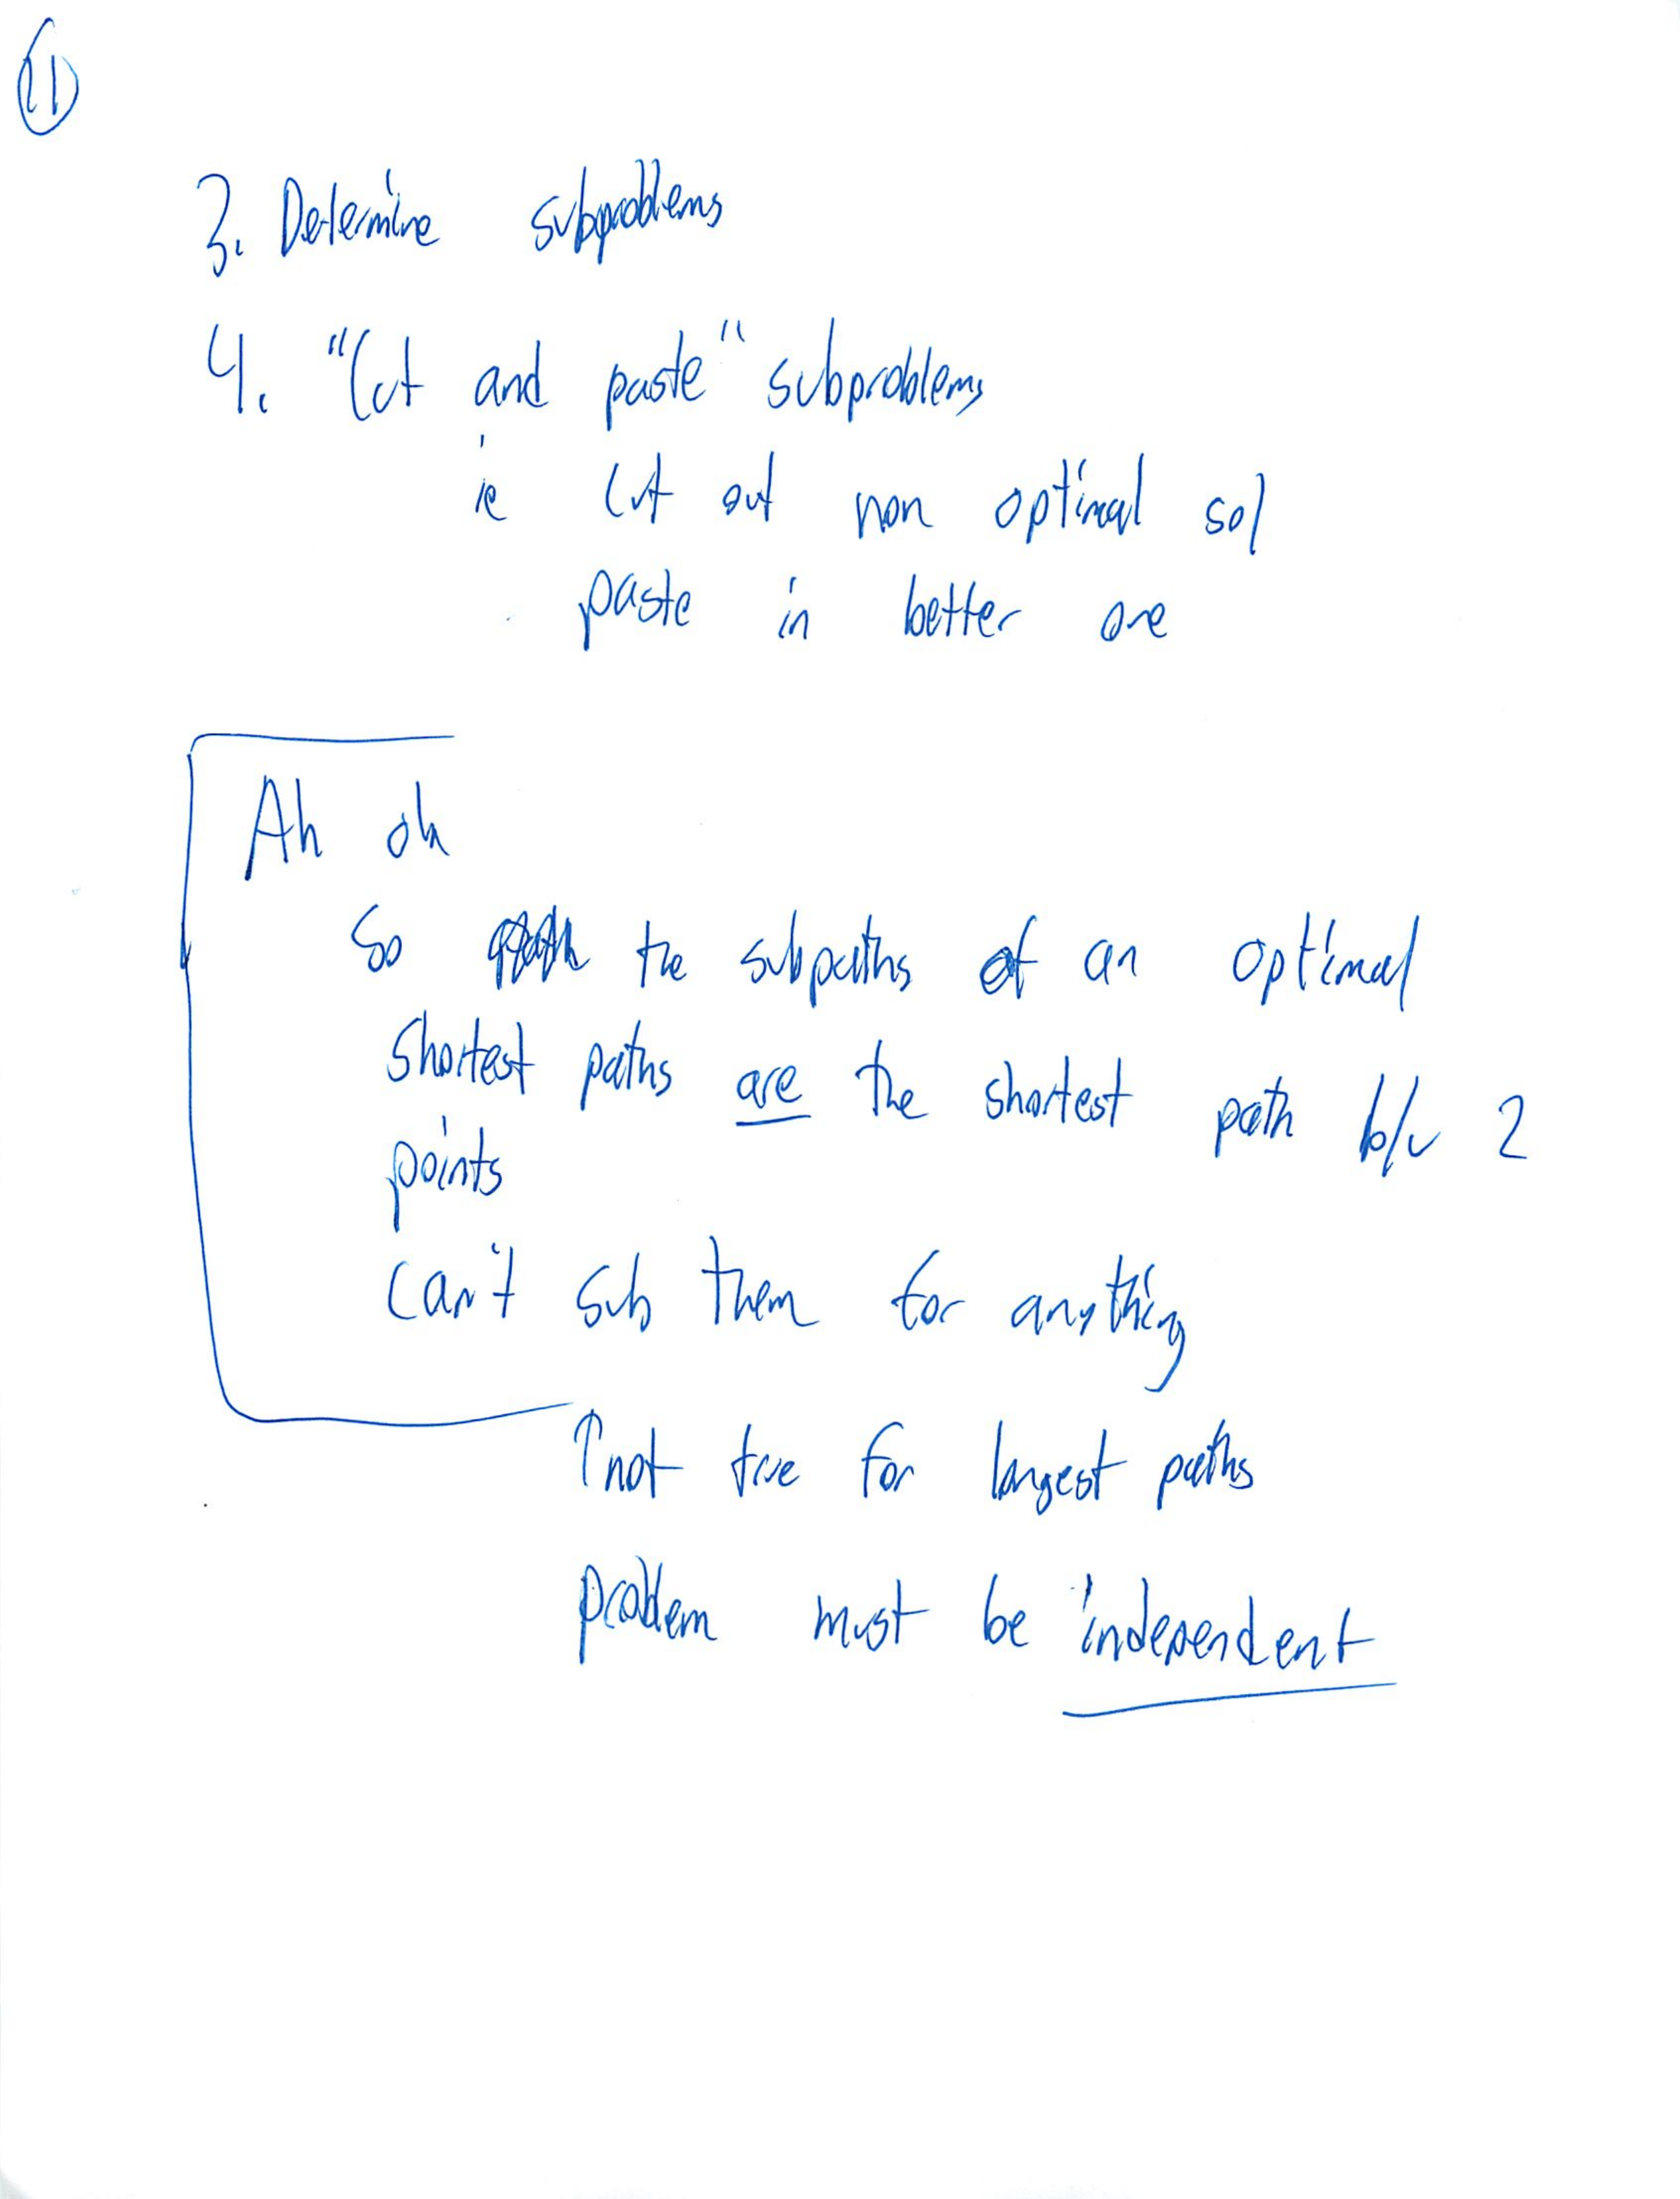 11
3. Determine subproblems
4. "Cut and paste" subproblems
ie cut out non optimal sol
paste in better one
Ah oh
So the subpaths of an optimal
shortest paths are the shortest path b/w 2
points
Can't sub them for anything
↑not true for longest paths
problem must be independent